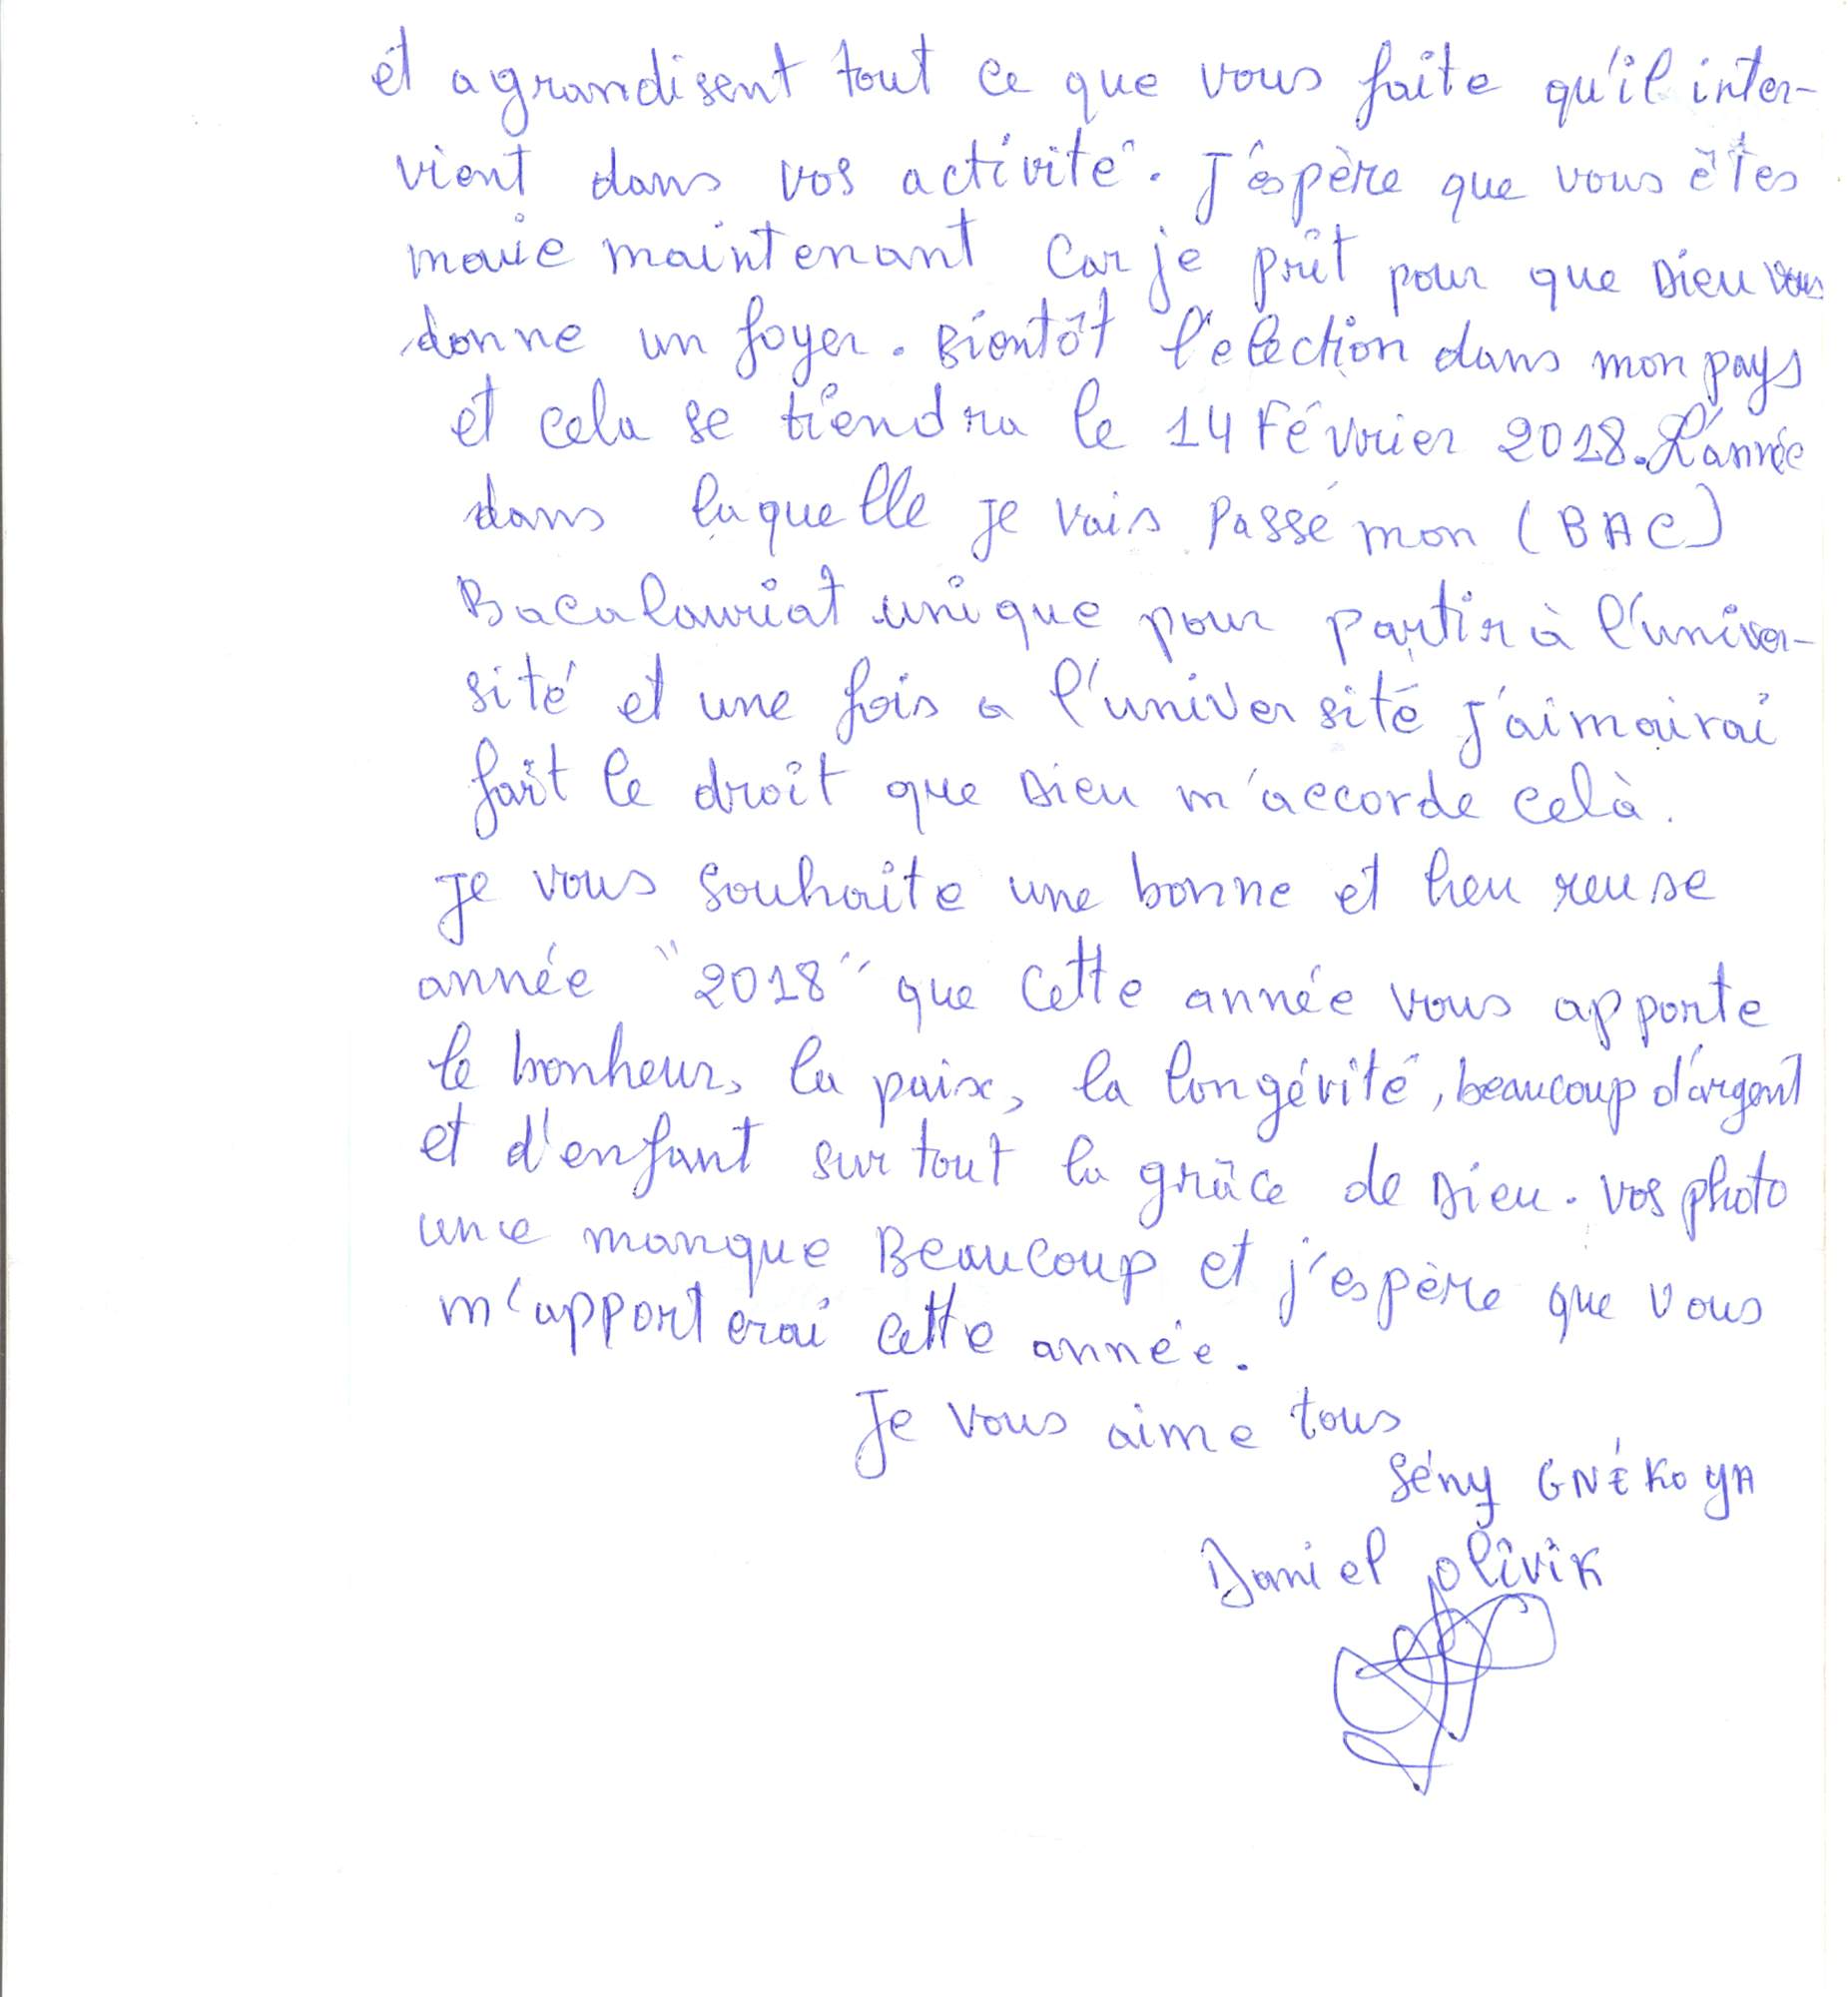 et agrandisent tout ce que vous faite qu'il inter-
vient dans vos activité. J'éspère que vous êtes
marie maintenant car je prit pour que Dieu vous
donne un foyer. Bientôt l'election dans mon pays
et cela se tiendra le 14 Février 2018. L'année
dans laquelle je vais passé mon (BAC)
Bacalauriat unique pour partir à l'univer-
sité et une fois a l'université j'aimairai
fait le droit que Dieu m'accorde celà.
Je vous souhaite une bonne et heureuse
année "2018" que cette année vous apporte
le bonheur, la paix, la longévité, beaucoup d'argent
et d'enfant surtout la grâce de Dieu. Vos photo
manque Beaucoup et j'espère que vous
m'apporterai cette année.
Je vous aime tous
Sény GNÉKOYA
Daniel Olivik